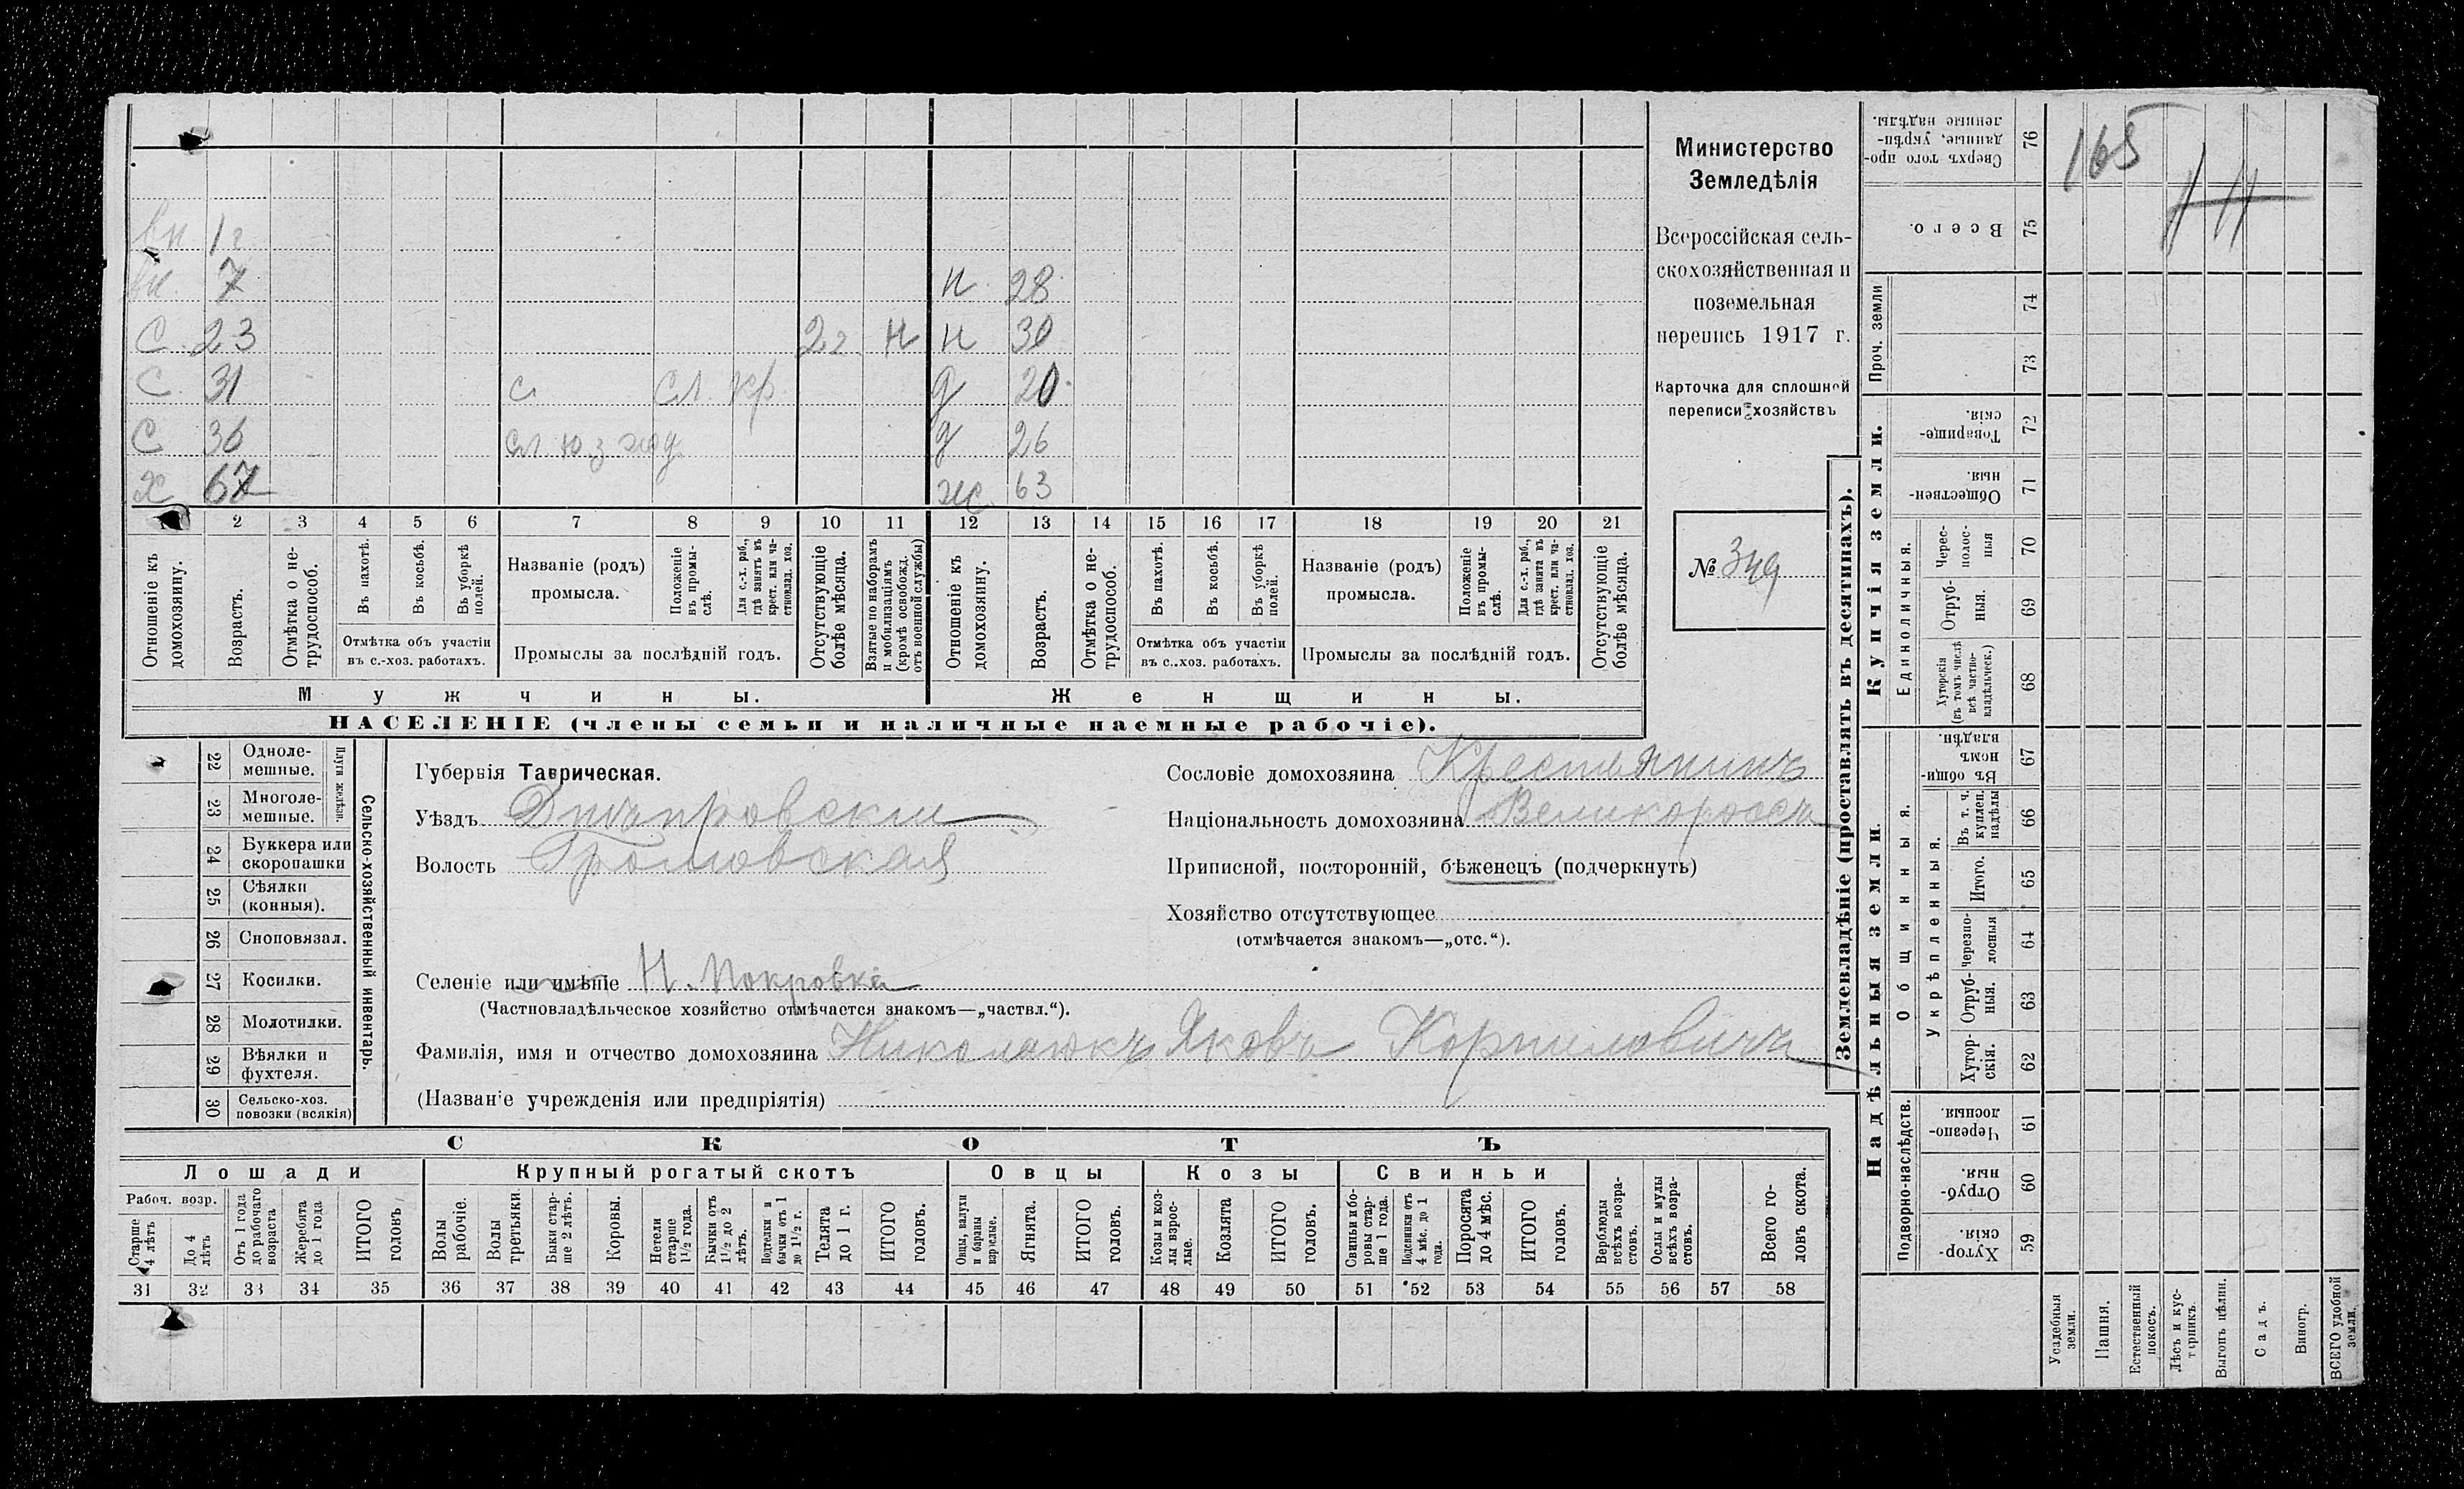 вн 1 г.
вн. 7 н. 28
С. 23 2 г. н н 30
С. 31 сл. кр. д 20
С 36 сл. ю. з. жд. д 26
Х 67 ж. 63
1 2 3 4 5 6 7 8 9 10 11 12 13 14 15 16 17 18 19 20 21
Отношеніе къ домохозяину.
Возрастъ.
Отмѣтка о не-трудоспособ.
Въ пахотѣ.
Въ косьбѣ.
Въ уборкѣ полей.
Отмѣтка объ участіи въ с.-хоз. работахъ.
Названіе (родъ) промысла.
Положеніе въ промы-слѣ.
Для с.-х. раб., гдѣ занятъ въ крест. или ча-стновлад. хоз.
Промыслы за послѣдній годъ.
Отсутствующіе болѣе мѣсяца.
Взятые по наборамъ и мобилизаціямъ (кромѣ освобожд. отъ военной службы)
Отношеніе къ домохозяину.
Возрастъ.
Отмѣтка о не-трудоспособ.
Въ пахотѣ.
Въ косьбѣ.
Въ уборкѣ полей.
Отмѣтка объ участіи въ с.-хоз. работахъ.
Названіе (родъ) промысла.
Положеніе въ промы-слѣ.
Для с.-х. раб., гдѣ занята въ крест. или ча-стновлад. хоз.
Промыслы за послѣдній годъ.
Отсутствующіе болѣе мѣсяца.
Мужчины. Женщины.
НАСЕЛЕНІЕ (члены семьи и наличные наемные рабочіе).
Министерство
Земледѣлія
Всероссійская сель-
скохозяйственная и
поземельная
перепись 1917 г.
Карточка для сплошной
переписи хозяйствъ
№ 349
22 Одноле-мешные.
23 Многоле-мешные.
Плуги желѣзн.
24 Буккера или скоропашки
25 Сѣялки (конныя).
26 Сноповязал.
27 Косилки.
28 Молотилки.
29 Вѣялки и фухтеля.
30 Сельско-хоз. повозки (всякія)
Сельско-хозяйственный инвентарь.
Губернія Таврическая.
Уѣздъ Днѣпровскій
Волость Громовская
Селеніе или имѣніе Н. Покровка
(Частновладѣльческое хозяйство отмѣчается знакомъ—„частвл.“).
Фамилія, имя и отчество домохозяина Николаюкъ Яковъ Корниловичъ
(Названіе учрежденія или предпріятія)
Сословіе домохозяина Крестьянинъ
Національность домохозяина Великороссъ
Приписной, посторонній, бѣженецъ (подчеркнуть)
Хозяйство отсутствующее
(отмѣчается знакомъ—„отс.“).
СКОТЪ
Лошади Крупный рогатый скотъ Овцы Козы Свиньи
Рабоч. возр.
Старше 4 лѣтъ
До 4 лѣтъ
Отъ 1 года до рабочаго возраста
Жеребята до 1 года
ИТОГО головъ
Волы рабочіе.
Волы третьяки.
Быки стар-ше 2 лѣтъ.
Коровы.
Нетели старше 1½ года.
Бычки отъ 1½ до 2 лѣтъ.
Подтелки и бычки отъ 1 до 1½ г.
Телята до 1 г.
ИТОГО головъ.
Овцы, валухи и бараны взрослые.
Ягнята.
ИТОГО головъ.
Козы и коз-лы взрос-лые.
Козлята
ИТОГО головъ.
Свиньи и бо-ровы стар-ше 1 года.
Подсвинки отъ 4 мѣс. до 1 года.
Поросята до 4 мѣс.
ИТОГО головъ.
Верблюды всѣхъ возра-стовъ.
Ослы и мулы всѣхъ возра-стовъ.
Всего го-ловъ скота.
31 32 33 34 35 36 37 38 39 40 41 42 43 44 45 46 47 48 49 50 51 52 53 54 55 56 57 58
Землевладѣніе (проставлять въ десятинахъ).
165
Сверхъ того про-данные, укрѣп-ленные надѣлы. 76
Всего. 75
Проч. земли 74
73
Купчія земли.
Товарище-скія. 72
Обществен-ныя. 71
Единоличныя.
Черес-полос-ныя 70
Отруб-ныя. 69
Хуторскія (въ томъ числѣ всѣ частно-владѣльческ.) 68
Надѣльныя земли.
Общинныя.
Въ общи-номъ владѣн. 67
Укрѣпленныя.
Въ т. ч. куплен. надѣлы 66
Итого. 65
Черезпо-лосныя 64
Отруб-ныя. 63
Хутор-скія. 62
Подворно-наслѣдств.
Черезпо-лосныя. 61
Отруб-ныя. 60
Хутор-скія. 59
Усадебныя земли.
Пашня.
Естественный покосъ.
Лѣсъ и кус-тарникъ.
Выгонъ цѣлин.
Садъ.
Виногр.
ВСЕГО удобной земли.